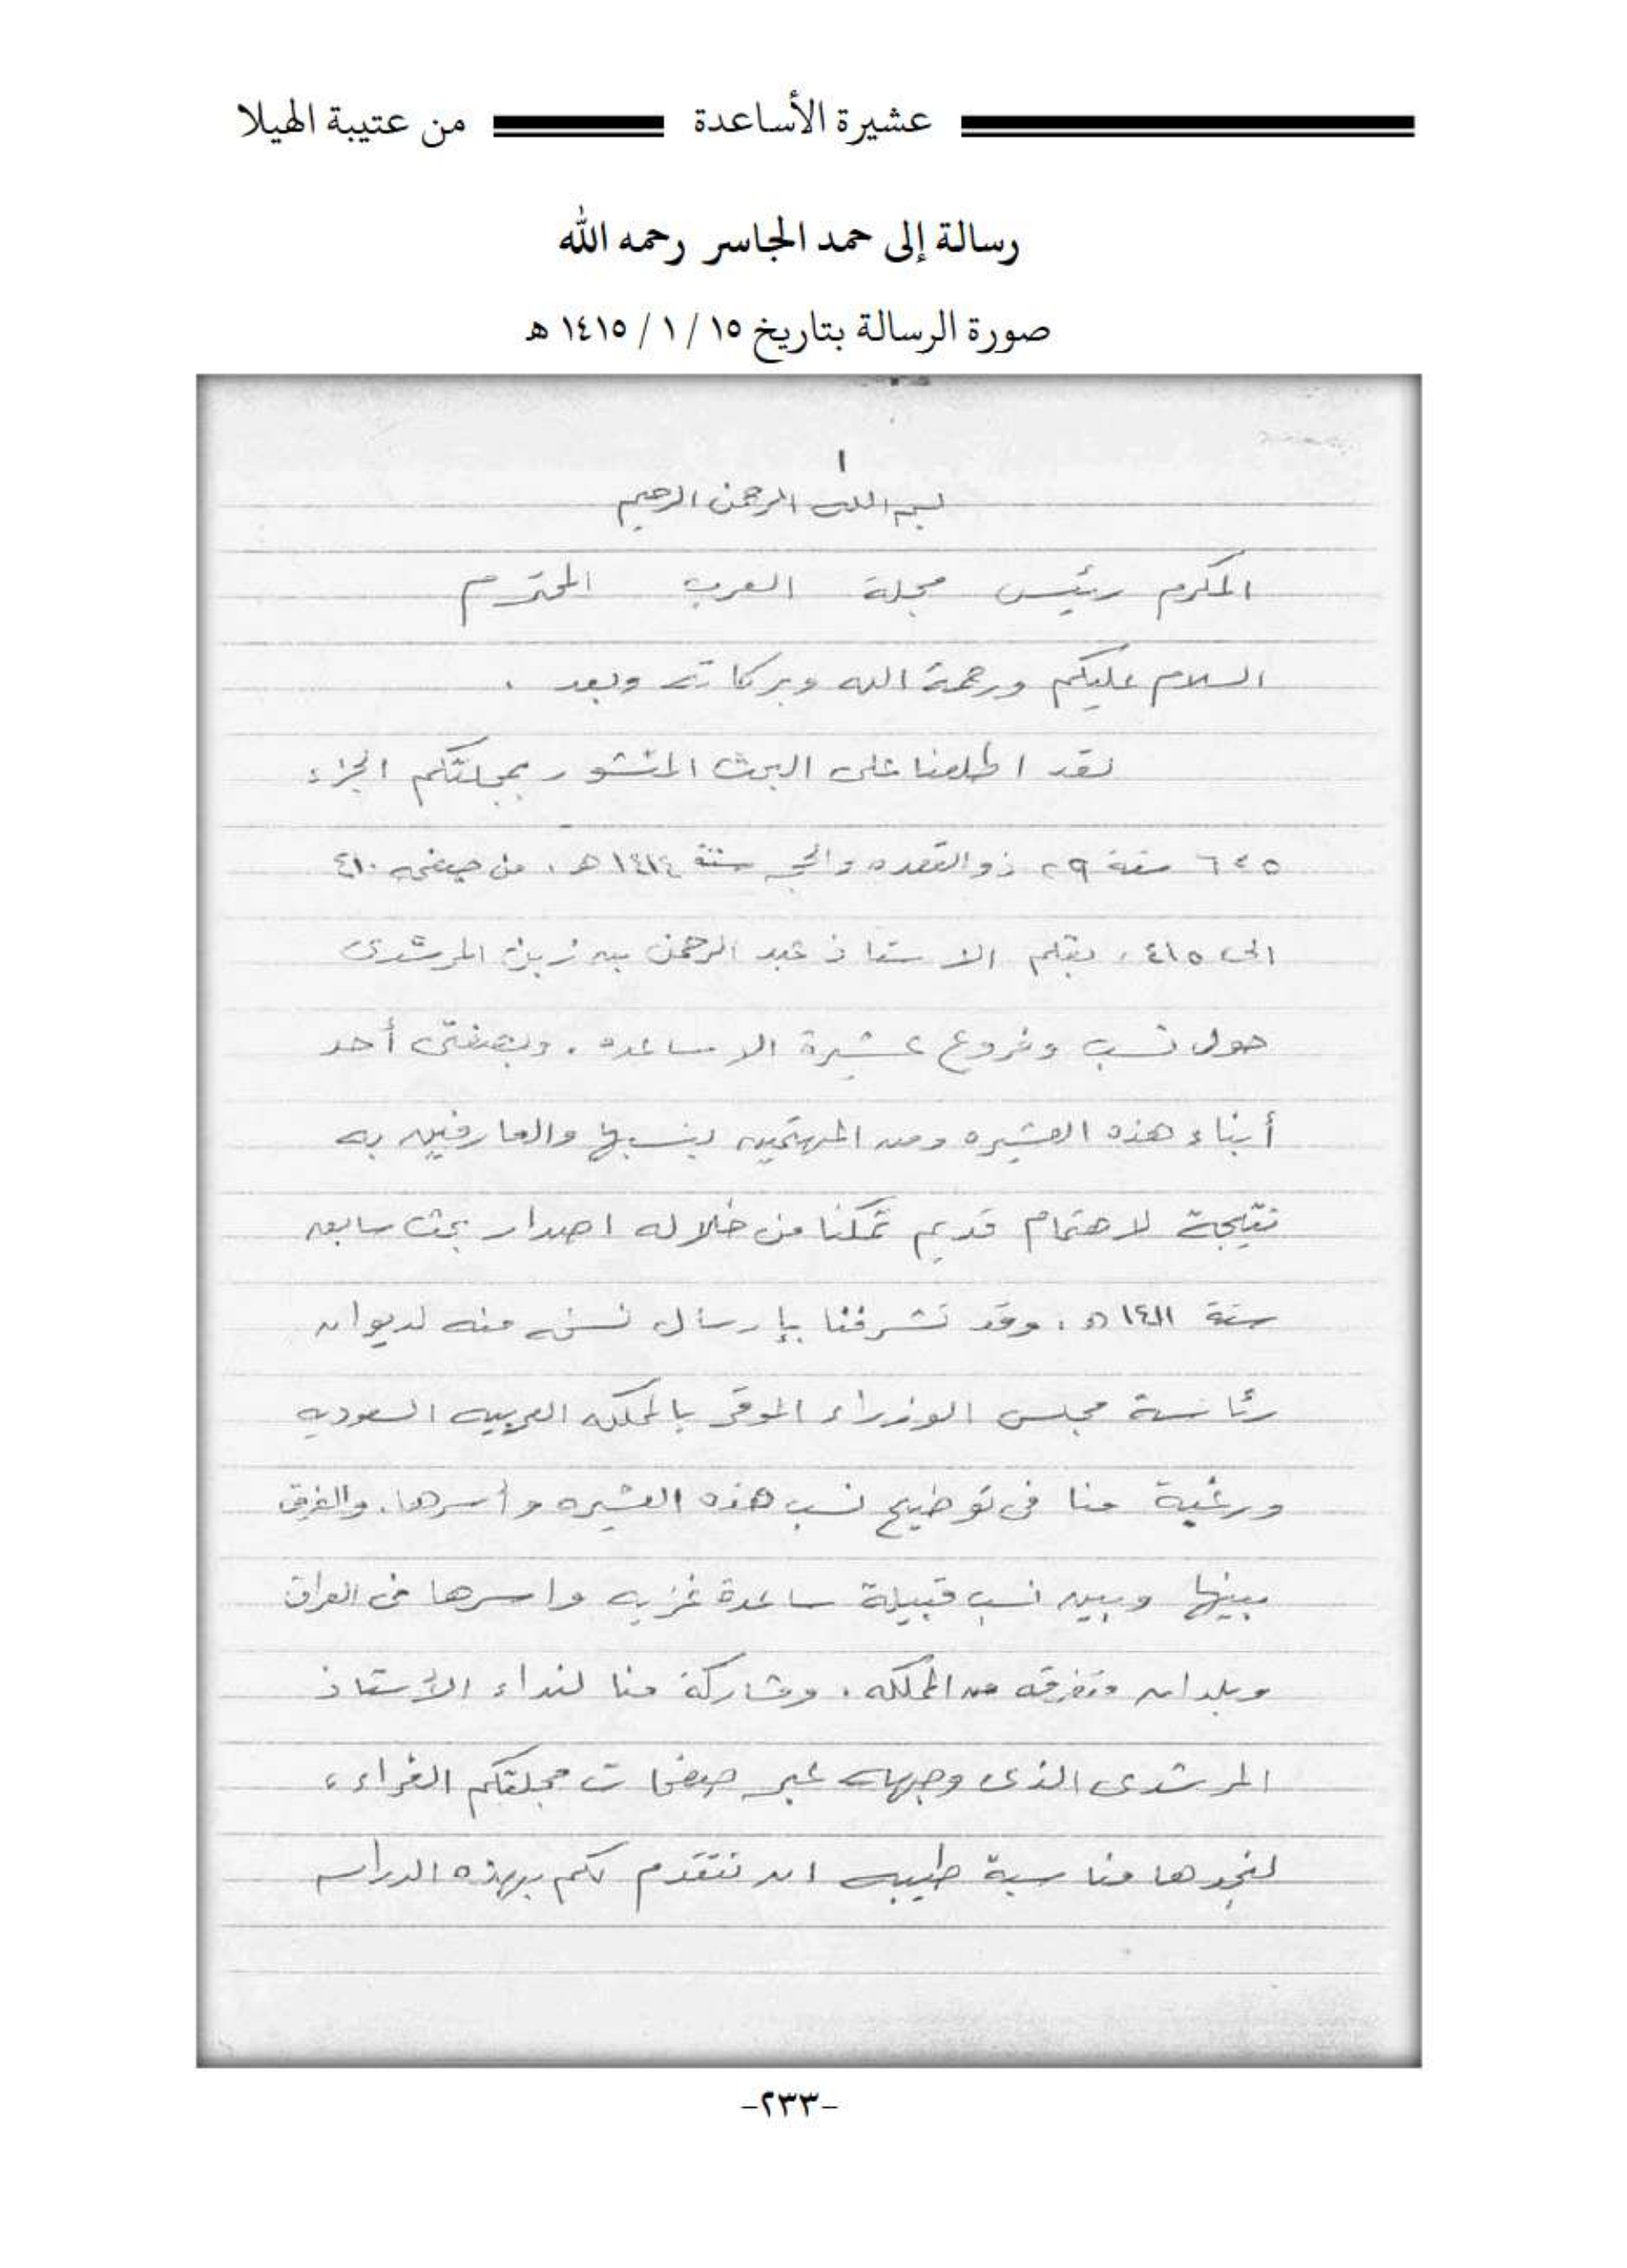 عشيرة الأساعدة من عتيبة الهيلا
رسالة إلى حمد الجاسر رحمه الله
صورة الرسالة بتاريخ ١٥ / ١ / ١٤١٥ هـ
١
بسم الله الرحمن الرحيم
المكرم رئيس مجلة العرب المحترم
السلام عليكم ورحمة الله وبركاته وبعد .
لقد اطلعنا على البحث المنشور بمجلتكم الجزء
٥ ، ٦ سنة ٢٩ ذو القعده والحجه سنة ١٤١٤ هـ ، من صفحه ٤١٠
الى ٤١٥ ، بقلم الاستاذ عبد الرحمن بن زبن المرشدى
حول نسب وفروع عشيرة الاساعده . وبصفتى أحد
أبناء هذه العشيره ومن المهتمين بنسبها والعارفين به
نتيجة لاهتمام قديم تمكنا من خلاله اصدار بحث سابق
سنة ١٤١١ هـ ، وقد تشرفنا بإرسال نسخه منه لديوان
رئاسة مجلس الوزراء الموقر بالمملكه العربيه السعوديه
ورغبة منا فى توضيح نسب هذه العشيره وأسرها ، والفرق
بينها وبين نسب قبيلة ساعدة غزيه واسرها فى العراق
وبلدان متفرقه من المملكه ، ومشاركة منا لنداء الأستاذ
المرشدى الذى وجهه عبر صفحات مجلتكم الغراء ،
لنجدها مناسبة طيبه ان نتقدم لكم بهذه الدراسه
-٢٣٣-